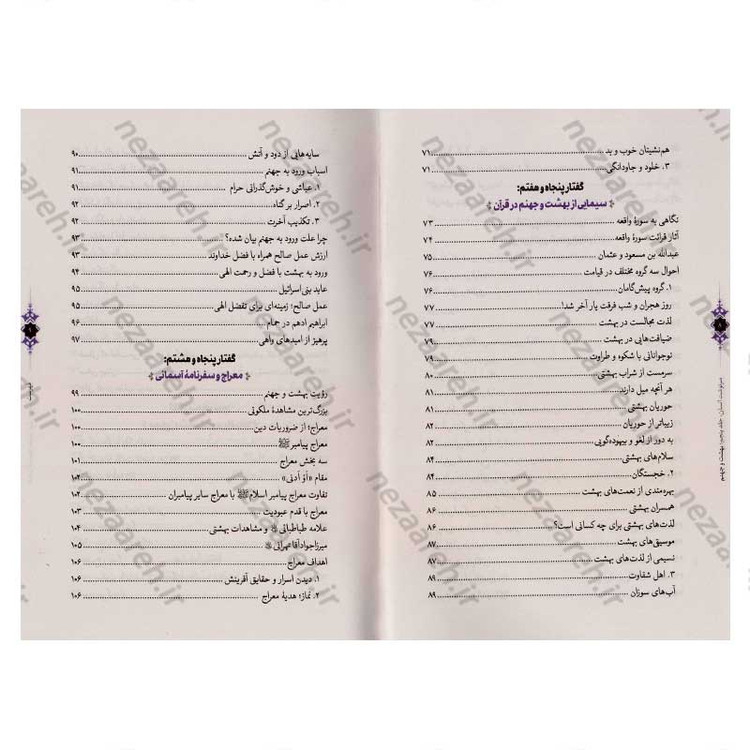 هم‌نشینان خوب و بد ........ ۷۱
۳. خلود و جاودانگی ........ ۷۱
گفتار پنجاه و هفتم:
سیمایی از بهشت و جهنم در قرآن
نگاهی به سورهٔ واقعه ........ ۷۳
آثار قرائت سورهٔ واقعه ........ ۷۴
عبدالله بن مسعود و عثمان ........ ۷۵
احوال سه گروه مختلف در قیامت ........ ۷۶
۱. گروه پیش‌گامان ........ ۷۶
روز هجران و شب فرقت یار آخر شد! ........ ۷۷
لذت مجالست در بهشت ........ ۷۷
ضیافت‌هایی در بهشت ........ ۷۹
نوجوانانی با شکوه و طراوت ........ ۷۹
سرمست از شراب بهشتی ........ ۸۰
هر آنچه میل دارند ........ ۸۱
حوریان بهشتی ........ ۸۱
زیباتر از حوریان ........ ۸۲
به دور از لغو و بیهوده‌گویی ........ ۸۲
سلام‌های بهشتی ........ ۸۴
۲. خجستگان ........ ۸۴
بهره‌مندی از نعمت‌های بهشت ........ ۸۵
همسران بهشتی ........ ۸۶
لذت‌های بهشتی برای چه کسانی است؟ ........ ۸۶
موسیقی‌های بهشت ........ ۸۷
نسیمی از لذت‌های بهشت ........ ۸۷
۳. اهل شقاوت ........ ۸۹
آب‌های سوزان ........ ۸۹
سرنوشت انسان، جلد پنجم: بهشت و جهنم
سایه‌هایی از دود و آتش ........ ۹۰
اسباب ورود به جهنم ........ ۹۱
۱. عیاشی و خوش‌گذرانی حرام ........ ۹۱
۲. اصرار بر گناه ........ ۹۲
۳. تکذیب آخرت ........ ۹۲
چرا علت ورود به جهنم بیان شده؟ ........ ۹۳
ارزش عمل صالح همراه با فضل خداوند ........ ۹۳
ورود به بهشت با فضل و رحمت الهی ........ ۹۴
عابد بنی‌اسرائیل ........ ۹۵
عمل صالح؛ زمینه‌ای برای تفضل الهی ........ ۹۵
ابراهیم ادهم در حمام ........ ۹۶
پرهیز از امیدهای واهی ........ ۹۷
گفتار پنجاه و هشتم:
معراج و سفرنامهٔ آسمانی
رؤیت بهشت و جهنم ........ ۹۹
بزرگ‌ترین مشاهدهٔ ملکوتی ........ ۱۰۰
معراج؛ از ضروریات دین ........ ۱۰۰
معراج پیامبر ﷺ ........ ۱۰۰
سه بخش معراج ........ ۱۰۱
مقام «أَوْ أَدنی» ........ ۱۰۲
تفاوت معراج پیامبر اسلام ﷺ با معراج سایر پیامبران ........ ۱۰۲
معراج با قدم عبودیت ........ ۱۰۳
علامه طباطبائی و مشاهدات بهشتی ........ ۱۰۴
میرزاجواد آقا تهرانی ........ ۱۰۵
اهداف معراج ........ ۱۰۶
۱. دیدن اسرار و حقایق آفرینش ........ ۱۰۶
۲. نماز؛ هدیهٔ معراج ........ ۱۰۶
فهرست
nezaareh.ir